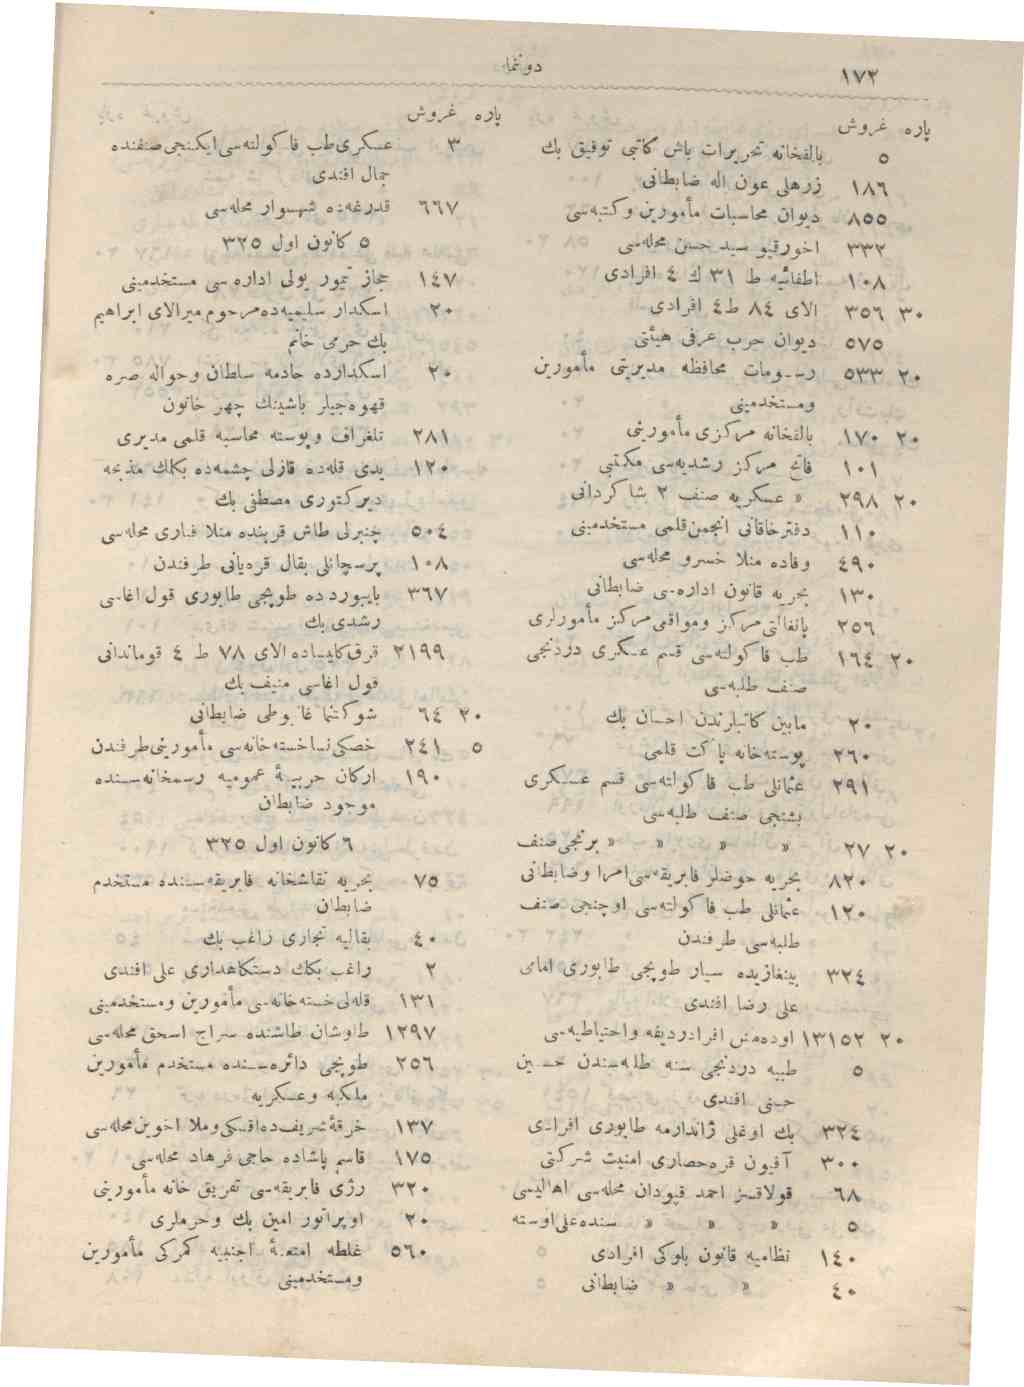 ١٧٢
دوننما
پاره غروش
٥ بالقخانه تحریرات باش کاتبی توفیق بك
١٨٦ زرهلی عون الله ضابطانی
٨٥٥ دیوان محاسبات مأمورین وکتبه‌سی
٣٣٢ اخورقپو سید حسن محله‌سی
١٠٨ اطفائیه ط ٣١ ك ٤ افرادی
٣٠ ٣٥٦ الای ٨٤ ط ٤ افرادی
٥٧٥ دیوان حرب عرفی هیئتی
٢٠ ٥٣٣ رسومات محافظه مدیریتی مأمورین
ومستخدمینی
٢٠ ١٧٠ بالقخانه مرکزی مأمورینی
١٠١ فاتح مرکز رشدیه‌سی مکتبی
٢٠ ٢٩٨ » عسکریه صنف ٢ شاکردانی
١١٠ دفترخاقانی انجمن‌قلمی مستخدمینی
٤٩٠ وفاده منلا خسرو محله‌سی
١٣٠ بحریه قانون اداره‌سی ضابطانی
٢٥٦ پانغالتی‌مرکز ومواقی‌مرکز مأمورلری
٢٠ ١٦٤ طب فاکولته‌سی قسم عسکری دردنجی
صنف طلبه‌سی
٢٠ مابین کاتبلرندن احسان بك
٢٦٠ پوسته‌خانه پاکت قلمی
٢٩١ عثمانلی طب فاکولته‌سی قسم عسکری
بشنجی صنف طلبه‌سی
٢٠ ٢٧ » » » » برنجی‌صنف
٨٢٠ بحریه حوضلر فابریقه‌سی‌امرا وضابطانی
١٢٠ عثمانلی طب فاکولته‌سی اوچنجی صنف
طلبه‌سی طرفندن
٣٢٤ بینغازیده سیار طوپجی طابوری امامی
علی رضا افندی
٢٠ ١٣١٥٢ اوده‌مش افرادردیفه واحتیاطیه‌سی
٥ طبیه دردنجی سنه طلبه‌سندن حسین
حسنی افندی
٣٢٤ بك اوغلی ژاندارمه طابوری افرادی
٣٠٠ آفیون قره‌حصاری امنیت شرکتی
٦٨ قولاقسز احمد قپودان محله‌سی اهالیسی
٥ » » » سنده‌علی‌اوسته
١٤٠ نظامیه قانون بلوکی افرادی
٤٠ » » ضابطانی
پاره غروش
٣ عسکری‌طب فاکولته‌سی‌ایکنجی‌صنفنده
جمال افندی
٦٦٧ قدرغه‌ده شهسوار محله‌سی
٥ کانون اول ٣٢٥
١٤٧ حجاز تیمور یولی اداره‌سی مستخدمینی
٢٠ اسکدار سلیمیه‌ده‌مرحوم‌میرالای ابراهیم
بك حرمی خانم
٢٠ اسکدارده خادمه سلطان وحواله صره
قهوه‌جیلر باشینك چهر خاتون
٢٨١ تلغراف وپوسته محاسبه قلمی مدیری
١٢٠ یدی قله‌ده قازلی چشمه‌ده بکلك مذبحه
دیرکتوری مصطفی بك
٥٠٤ چنبرلی طاش قربنده منلا فناری محله‌سی
١٠٨ پرسچانلی بقال قره‌یانی طرفندن
٣٦٧ بایبوردده طوپجی طابوری قول اغاسی
رشدی بك
٢١٩٩ قرق‌کلیساده الای ٧٨ ط ٤ قوماندانی
قول اغاسی منیف بك
٢٠ ٦٤ شوکتنما غانبوطی ضابطانی
٥ ٢٤١ خصکی‌نساخسته‌خانه‌سی مأمورینی‌طرفندن
١٩٠ ارکان حربیهٔ عمومیه رسمخانه‌سنده
موجود ضابطان
٦ کانون اول ٣٢٥
٧٥ بحریه نقاشخانه فابریقه‌سنده مستخدم
ضابطان
٤٠ بقالیه تجاری راغب بك
٢ راغب بكك دستکاهداری علی افندی
١٣١ قله‌لی‌خسته‌خانه‌سی مأمورین ومستخدمینی
١٢٩٧ طاوشان طاشنده سراج اسحق محله‌سی
٢٥٦ طوپجی دائره‌سنده مستخدم مأمورین
ملکیه وعسکریه
١٣٧ خرقهٔ‌شریف‌ده‌اقسکی‌وملا اخوین‌محله‌سی
١٧٥ قاسم پاشاده حاجی فرهاد محله‌سی
٣٢٠ رژی فابریقه‌سی تفریق خانه مأمورینی
٢٠ اوپراتور امین بك وحرملری
٥٦٠ غلطه امتعهٔ اجنبیه کمرکی مأمورین
ومستخدمینی